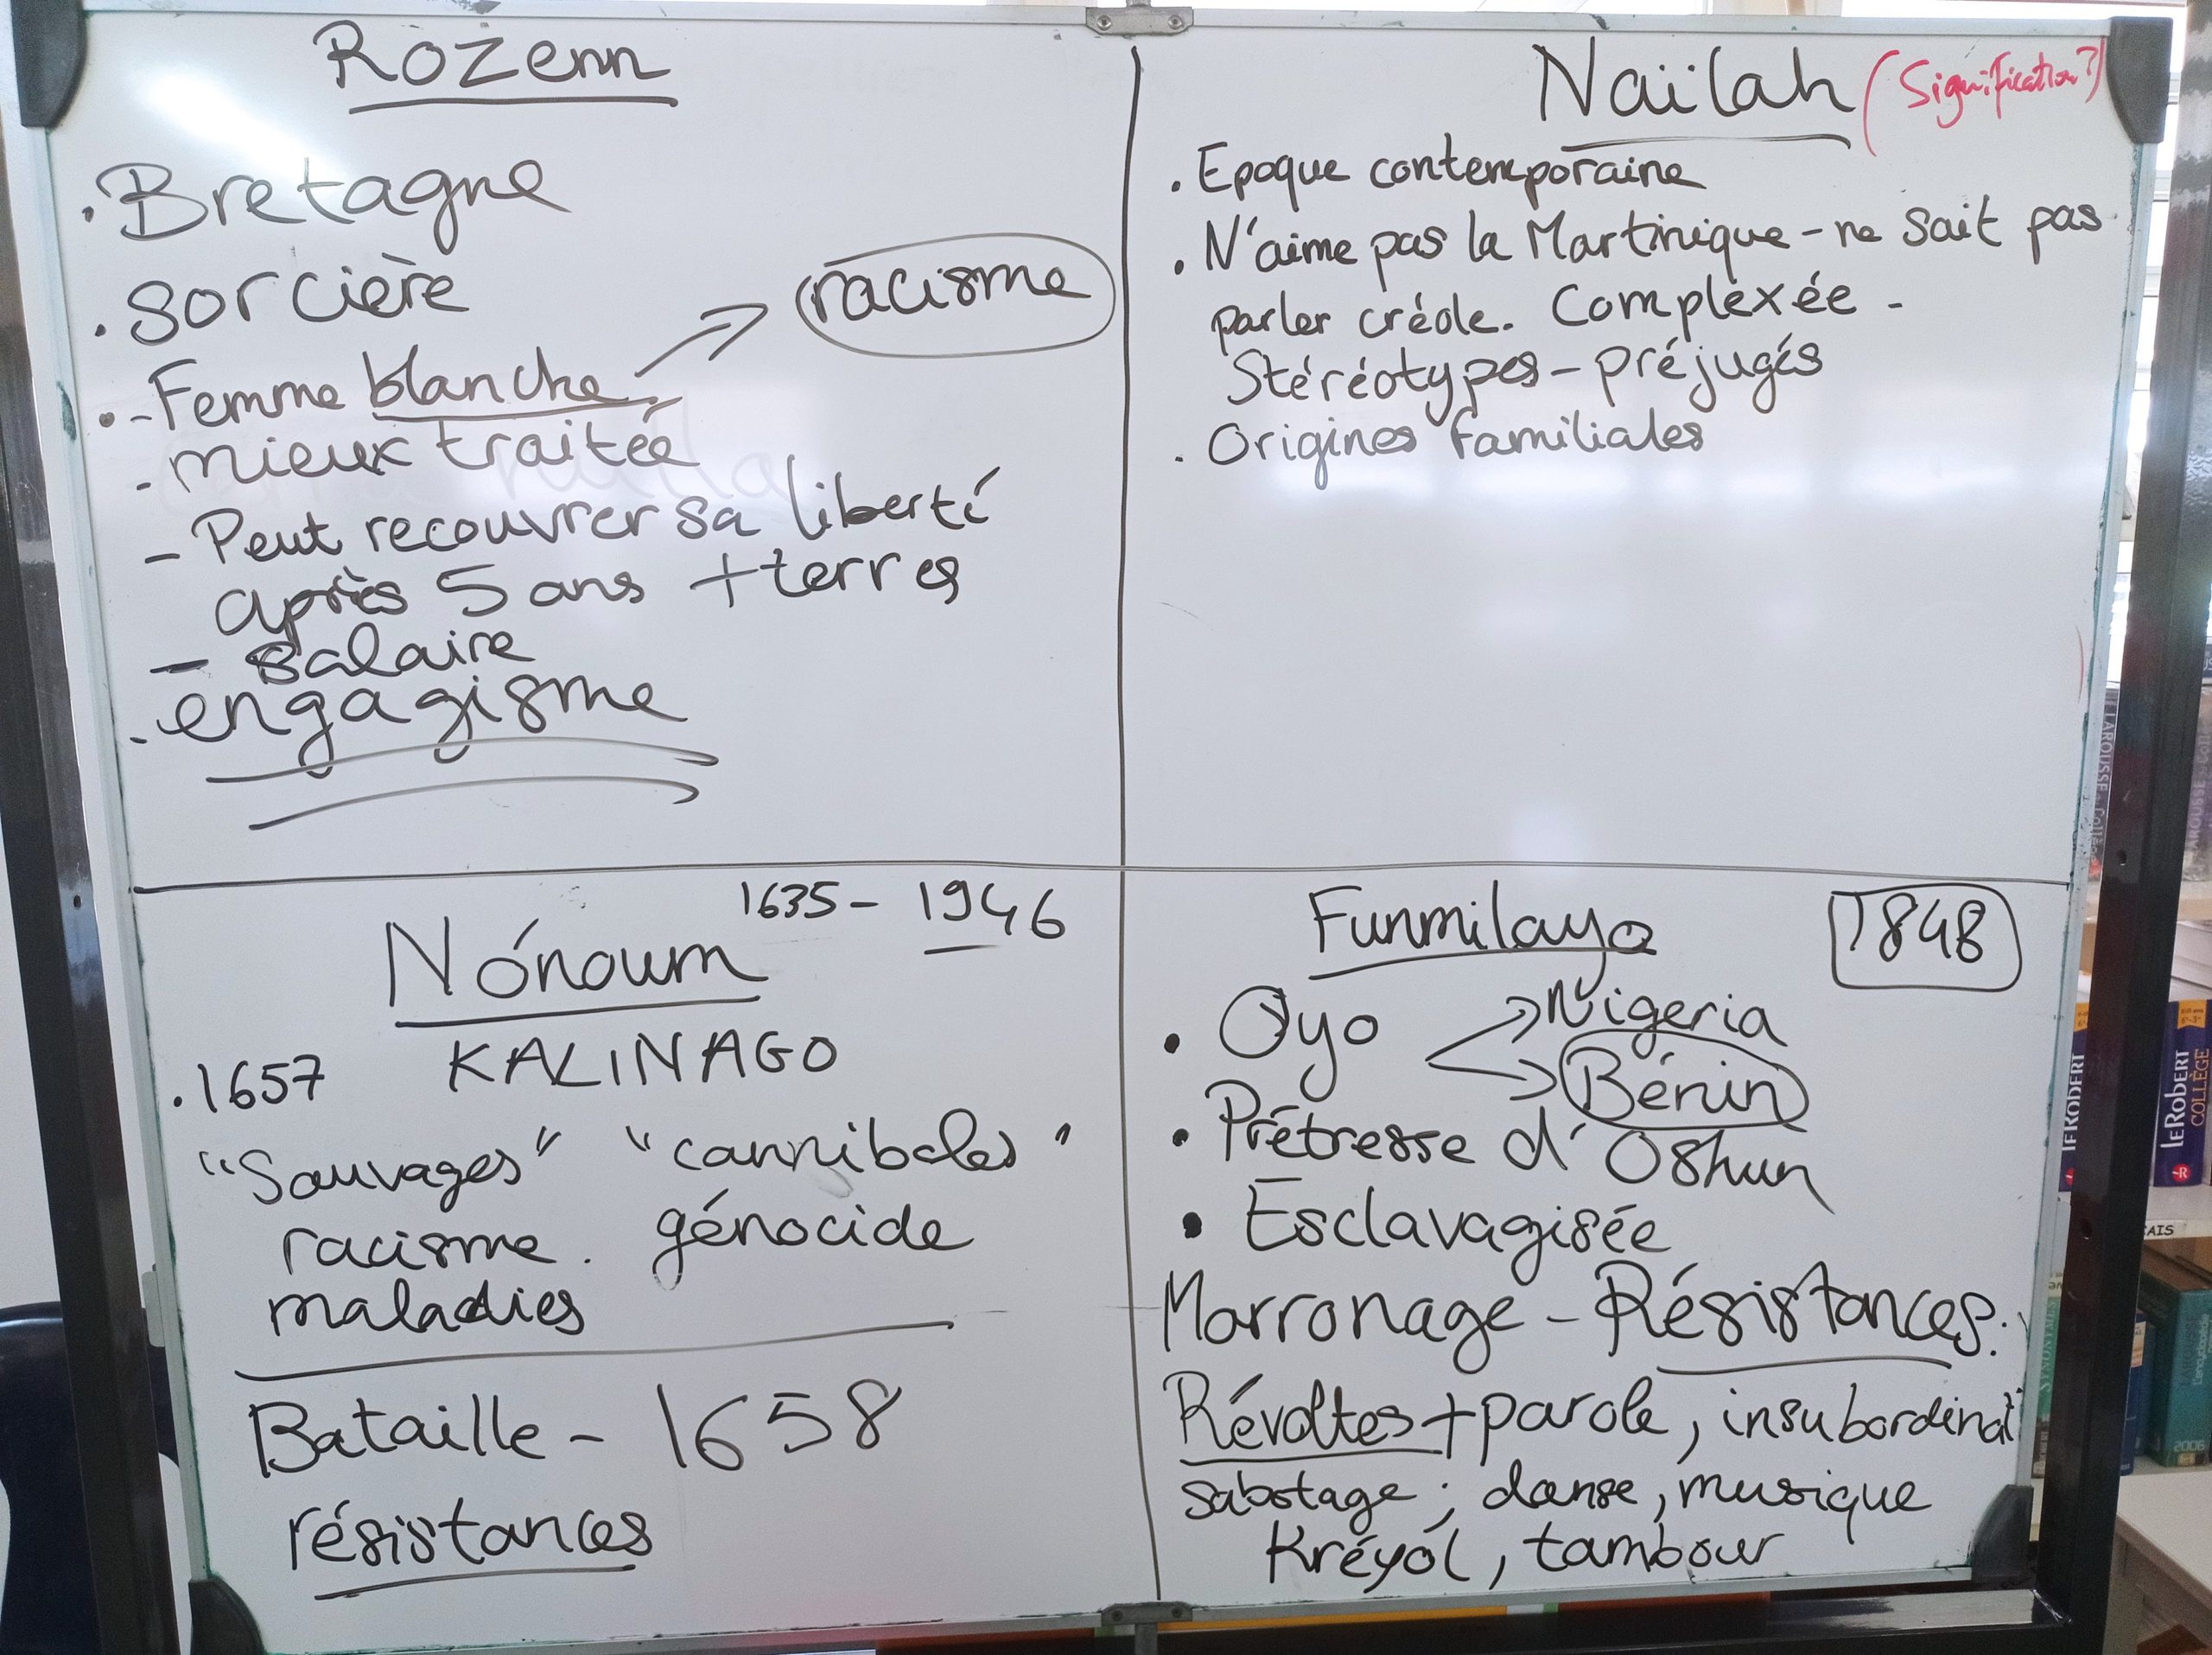 Rozenn
. Bretagne
. sorcière
racisme
. - Femme blanche
- mieux traitée
- Peut recouvrer sa liberté
après 5 ans + terres
- salaire
. engagisme
Naïlah (Signification?)
. Epoque contemporaine
. N'aime pas la Martinique - ne sait pas
parler créole. Complexée -
Stéréotypes - préjugés
. Origines familiales
1635 - 1946
Nónoum
KALINAGO
. 1657
"Sauvages" "cannibales"
racisme. génocide
maladies
Bataille - 1658
résistances
Funmilayo 1848
• Oyo
Nigeria
Bénin
• Prêtresse d'Oshun
• Esclavagisée
Marronage - Résistances.
Révoltes + parole, insubordinat°
sabotage ; danse, musique
Kréyól, tambour
LE ROBERT
COLLÈGE